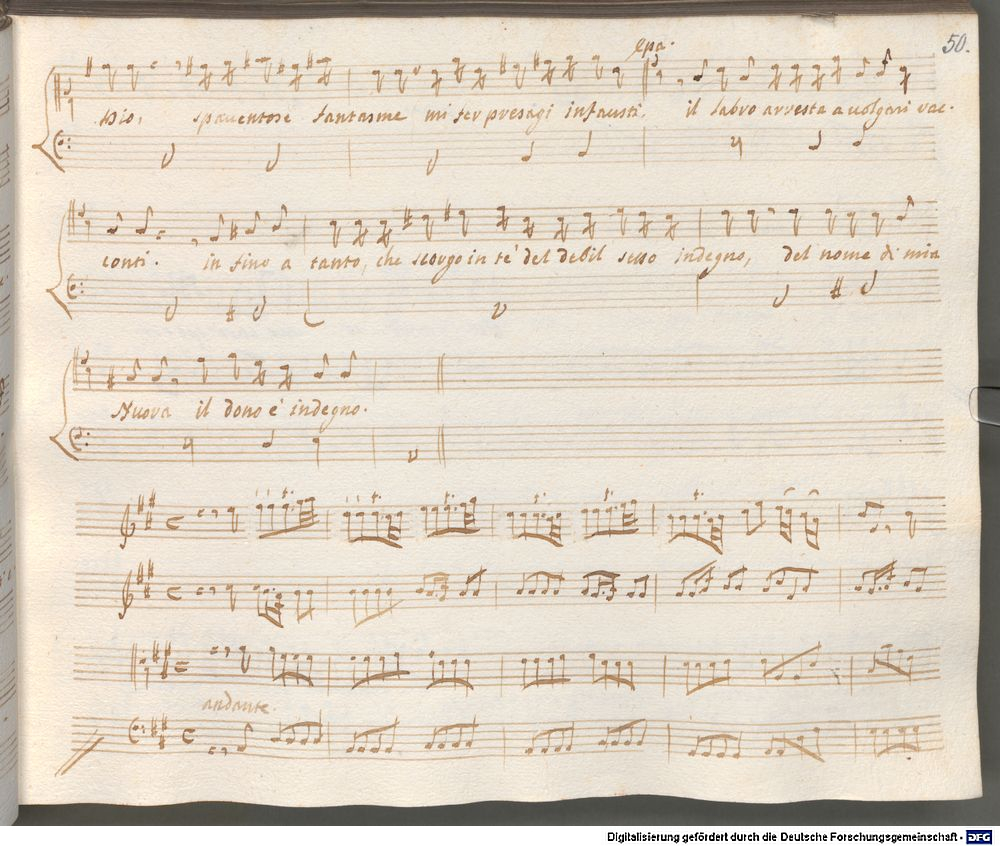 50.
Epa.
Dio, spaventose fantasme mi ser presagi infausti. il labro arresta a volgari rac-
conti. in fino a tanto, che scorgo in te del debil sesso indegno, del nome di mia
Nuora il dono è indegno.
andante.
Digitalisierung gefördert durch die Deutsche Forschungsgemeinschaft - DFG